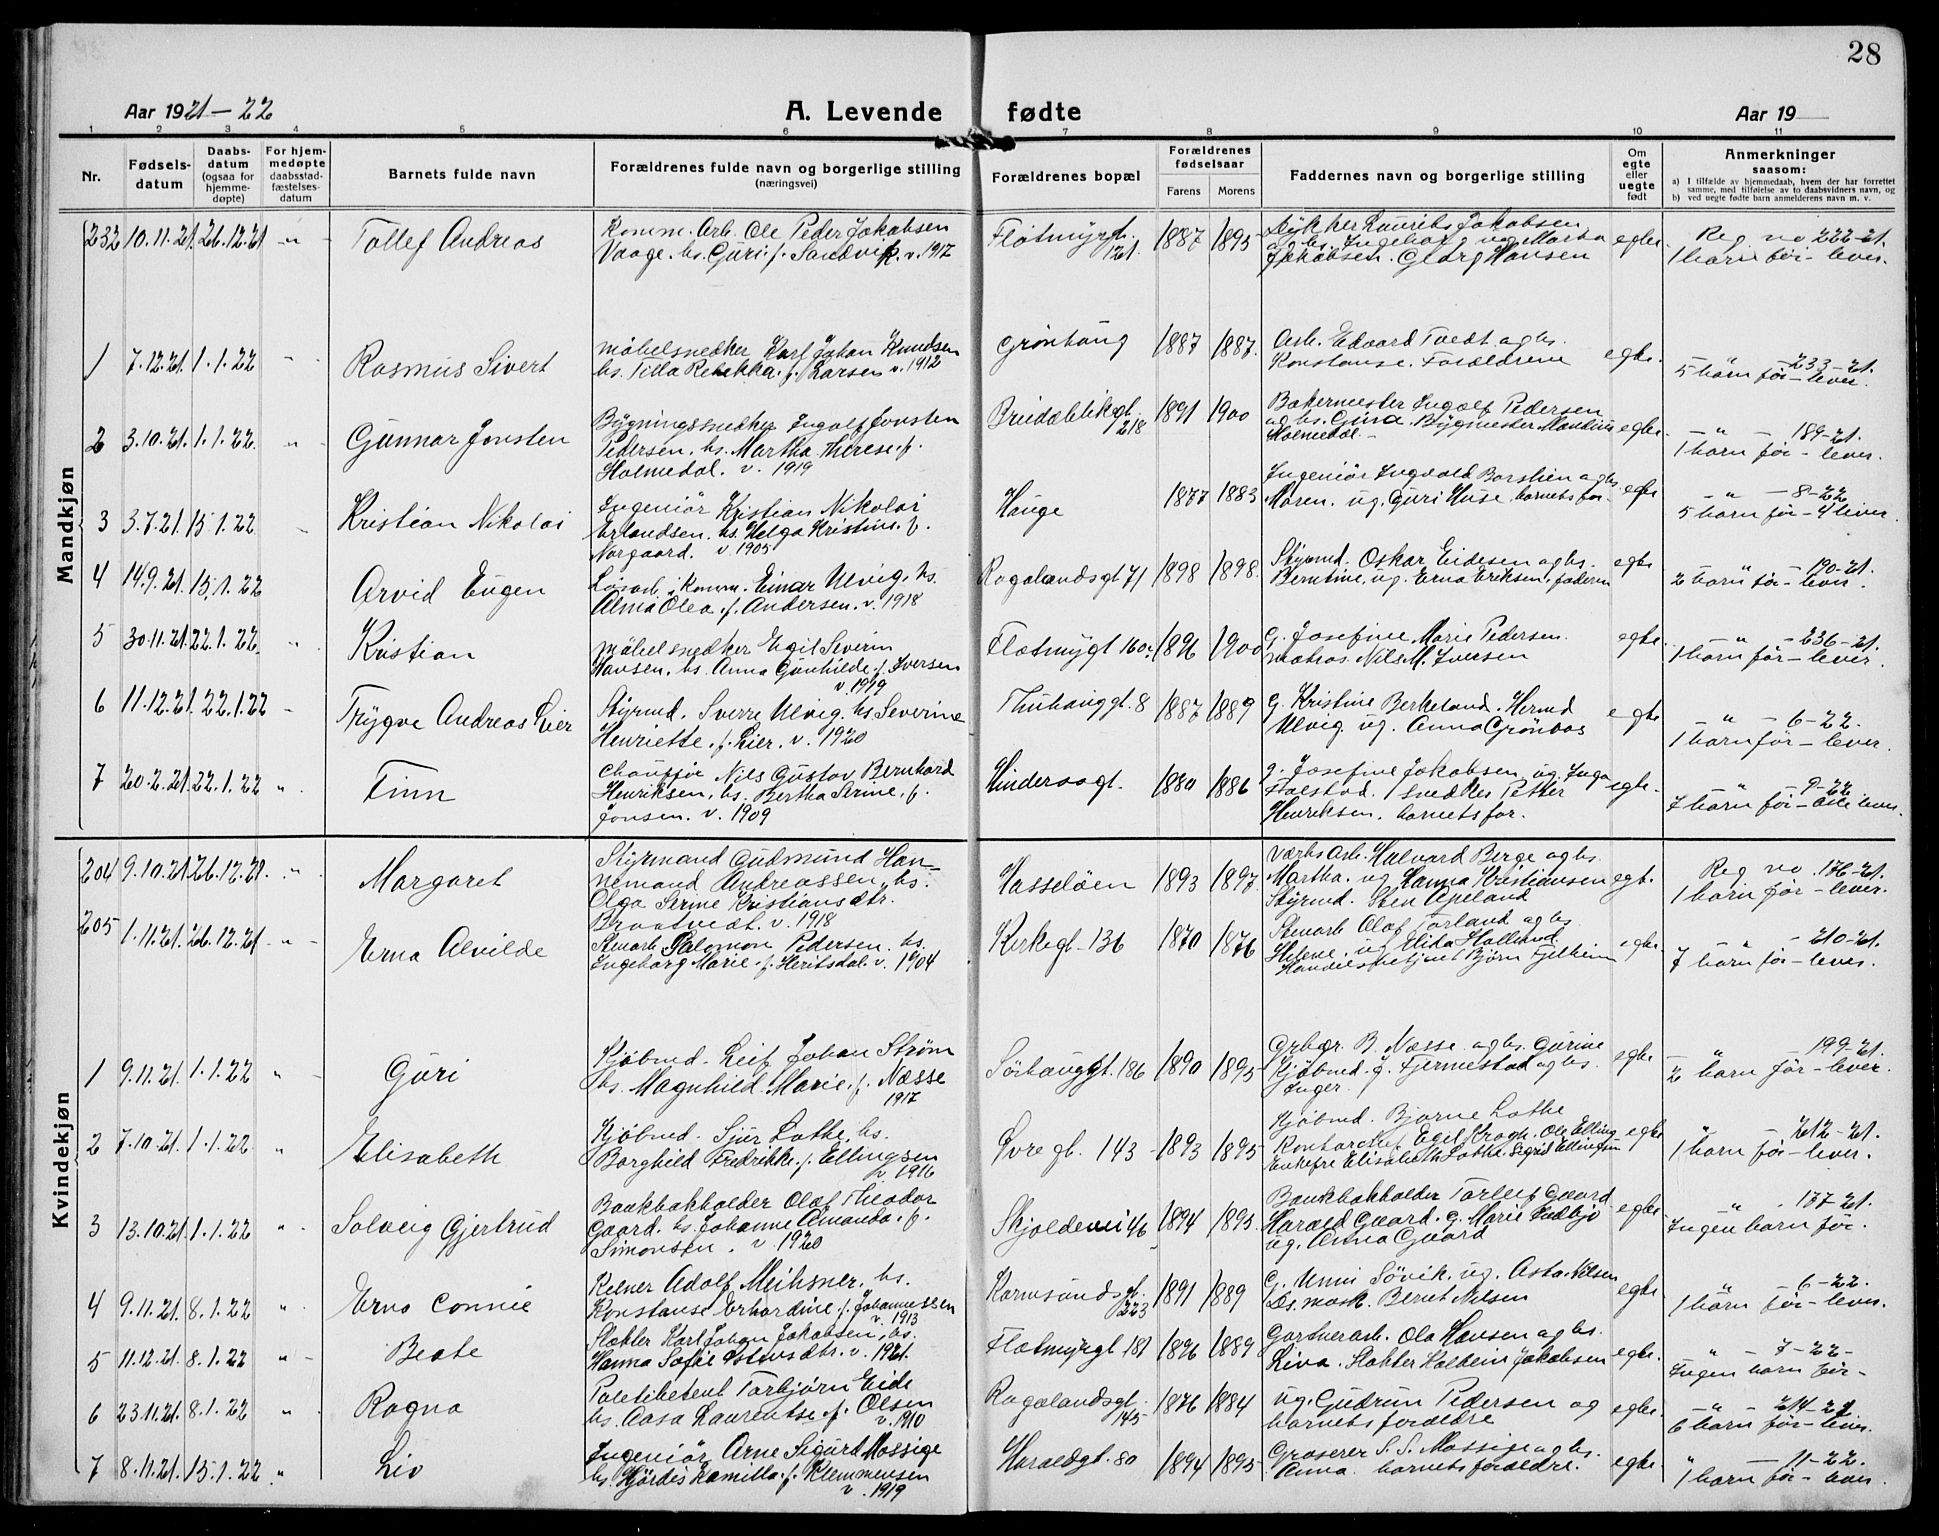 28
Aar 1921-22
A. Levende fødte
Aar 19
1 2 3 4 5 6 7 8 9 10 11
Nr.
Fødselsdatum
Daabsdatum (ogsaa for hjemmedøpte)
For hjemmedøpte daabsstadfæstelsesdatum
Barnets fulde navn
Forældrenes fulde navn og borgerlige stilling (næringsvei)
Forældrenes bopæl
Forældrenes fødselsaar
Farens Morens
Faddernes navn og borgerlige stilling
Om egte eller uegte født
Anmerkninger saasom:
a) I tilfælde av hjemmedaab, hvem der har forrettet samme, med tilføielse av to daabsvidners navn, og
b) ved uegte fødte barn anmelderens navn m. v.
Mandkjøn
232 10.11.21. 26.12.21 Tollef Andreas
Komm. Arb. Ole Peder Jakobsen
Vaage. hs. Guri f. Sandvik. v. 1917
Flotmyrgt. 121. 1887 1895
Jakobsen. Georg Hansen
egte.
Reg. no 222-21.
1 barn før - lever.
1 7.12.21. 1.1.22 Rasmus Sivert
Møbelsnedker Karl Johan Knudsen
hs. Tilla Rebekka. f. Larsen v. 1912
Grønhaug 1887 1887.
Arb. Edvard Tvedt og hs.
Konstanse. Forældrene
egte.
" - 233-21.
5 barn før - lever.
2 3.10.21. 1.1.22. Gunnar Jonsten
Bygningssnedker Ingolf Jonsten
Pedersen. hs. Martha Therese. f.
Holmedal. v. 1919
Breidablikgt. 218 1891 1900
Bakermester Ingolf Pedersen
og hs. Gina. Bygmester Mandius
Holmedal. -
egte.
" - 189-21.
1 barn før - lever.
3 3.7.21. 15.1.22 Kristian Nikolai
Ingeniør Kristian Nikolai
Erlandsen. hs. Helga Kristine. f.
Norgaard. v. 1905
Hauge 1877 1883
Maren. ug. Guri Huse barnets far
egte
" - 8-22
5 barn før - 4 lever.
4 14.9.21. 15.1.22 Arvid Eugen
Løsarb. i komm. Einar Ulvig. hs.
Alma Olea f. Andersen. v. 1918
Rogalandsgt 71 1898 1898.
Styrmd. Oskar Eidesen og hs.
Berntine, ug. Erna Eriksen, faderen
egte
" - 190-21.
2 barn før - lever.
5 30.11.21. 22.1.22. Kristian
Møbelsnedker Egil Severin
Hansen. hs. Anna Gunhilde. f. Iversen
v. 1919
Flotmyrgt 160. 1896 1900
G. Josefine Marie Pedersen.
Matros Nils M. Iversen
egte
" - 236-21.
1 barn før - lever.
6 11.12.21. 22.1.22 Trygve Andreas Lier
Styrmd. Sverre Ulvig. hs Severine
Henriette. f. Lier. v. 1920
Thuhauggt. 8 1887 1889
G. Kristine Birkeland. Hermd
Ulvig. ug. Anna Grønaas
egte
" - 6-22.
1 barn før - lever.
7 20.2.21. 22.1.22 Finn
Chauffør Nils Gustav Bernhard
Henriksen. hs. Bertha Serine. f.
Jonsen. v. 1909
Hinderaagt. 1880 1886
g. Josefine Jakobsen ug. Inga
Falstad. Snedker Petter
Henriksen. barnets far.
egte.
" - 9-22
7 barn før - alle lever.
Kvindekjøn
204 9.10.21. 26.12.21. Margaret
Styrmand Gudmund Hannemand
Andreassen, hs.
Olga Serine Kristiansdtr.
Braatvedt. v. 1918
Hasseløen 1893 1897.
Værks Arb. Halvard Berge og hs.
Martha. ug Hanna Kristiansen
Styrmd. Sten Apeland
egt.
Reg. no. 176-21.
1 barn før - lever.
205 1.11.21. 26.12.21 Erna Alvilde
Stenarb. Salomon Pedersen. hs.
Ingeborg Marie. f. Heritsdal. v. 1904
Kirkegt. 136 1870 1876
Stenarb Olaf Torland og hs
Helene, ug Elida Holland.
Handelsbetjent Bjørn Fjelheim
egte.
" - 210-21.
7 barn før - lever.
1 9.11.21. 1.1.22 Guri
Kjøbmd. Leif Johan Strøm
hs. Magnhild Marie. f. Næsse
1917
Sørhauggt. 186 1890 1895
Grbgr. B. Næsse og hs. Gurine
Kjøbmd. J. Fjermestad og hs.
Inger.
egte
" - 199-21.
2 barn før - lever.
2 7.10.21. 1.1.22 Elisabeth
Kjøbmd. Sjur Lothe, hs.
Borghild Fredrikke. f. Ellingsen
v. 1916
Øvregt. 143 1893 1895
Kjøbmd. Bjarne Lothe
Kontorchef Egil Krogh. Ole Elling
Enkefre Elisabeth Lothe. Sigrid Ellingsen
egte
" - 212-21.
1 barn før - lever.
3 13.10.21. 1.1.22 Solveig Gjertrud
Bankbokholder Olaf Theodor
Gaard. hs. Johanne Amanda. f.
Simonsen. v. 1920
Skjoldevei 46 1894 1895.
Bankbokholder Torleif Gaard
Harald Gaard. g. Marie
ug. Anna Gaard
egte.
" - 177-21.
Ingen barn før.
4 9.11.21. 8.1.22 Erna Connie
Kelner Adolf Meihsner. hs.
Konstanse Erhardine. f. Johannessen
v. 1913
Karmsundsgt. 223 1891 1889
G. Unni Søvik. ug. Asta Nilsen
Ls. mask. Bernt Nilsen
egte
" - 6-22.
1 barn før - lever.
5 11.12.21. 8.1.22 Beate
Slakter Karl Johan Jakobsen, hs.
Hanna Sofie Ostensdtr. v. 1921.
Flotmyrgt 181 1896 1889
Gartnerarb. Ola Hansen og hs.
Liva. Slakter Halbein Jakobsen
egte.
" - 7-22-
Ingen barn før-
6 23.11.21. 8.1.22 Ragna
Politibetent Torbjørn Eide
hs. Aasa Laurentse f. Olsen
v. 1910
Rogalandsgt. 145 1876 1884
ug. Gudrun Pedersen og
barnets forældre
egte.
" - 214-21.
6 barn før - lever.
7 8.11.21. 15.1.22 Liv
Ingeniør Arne Sigurd Mossige
hs. Hjørdis Kamilla. f. Klemmensen
v. 1919
Haraldgt. 80 1894 1895
Groserer S. S. Mossige og hs.
Anna. barnets forældre.
egte.
" - 11-22.
1 barn før - lever.